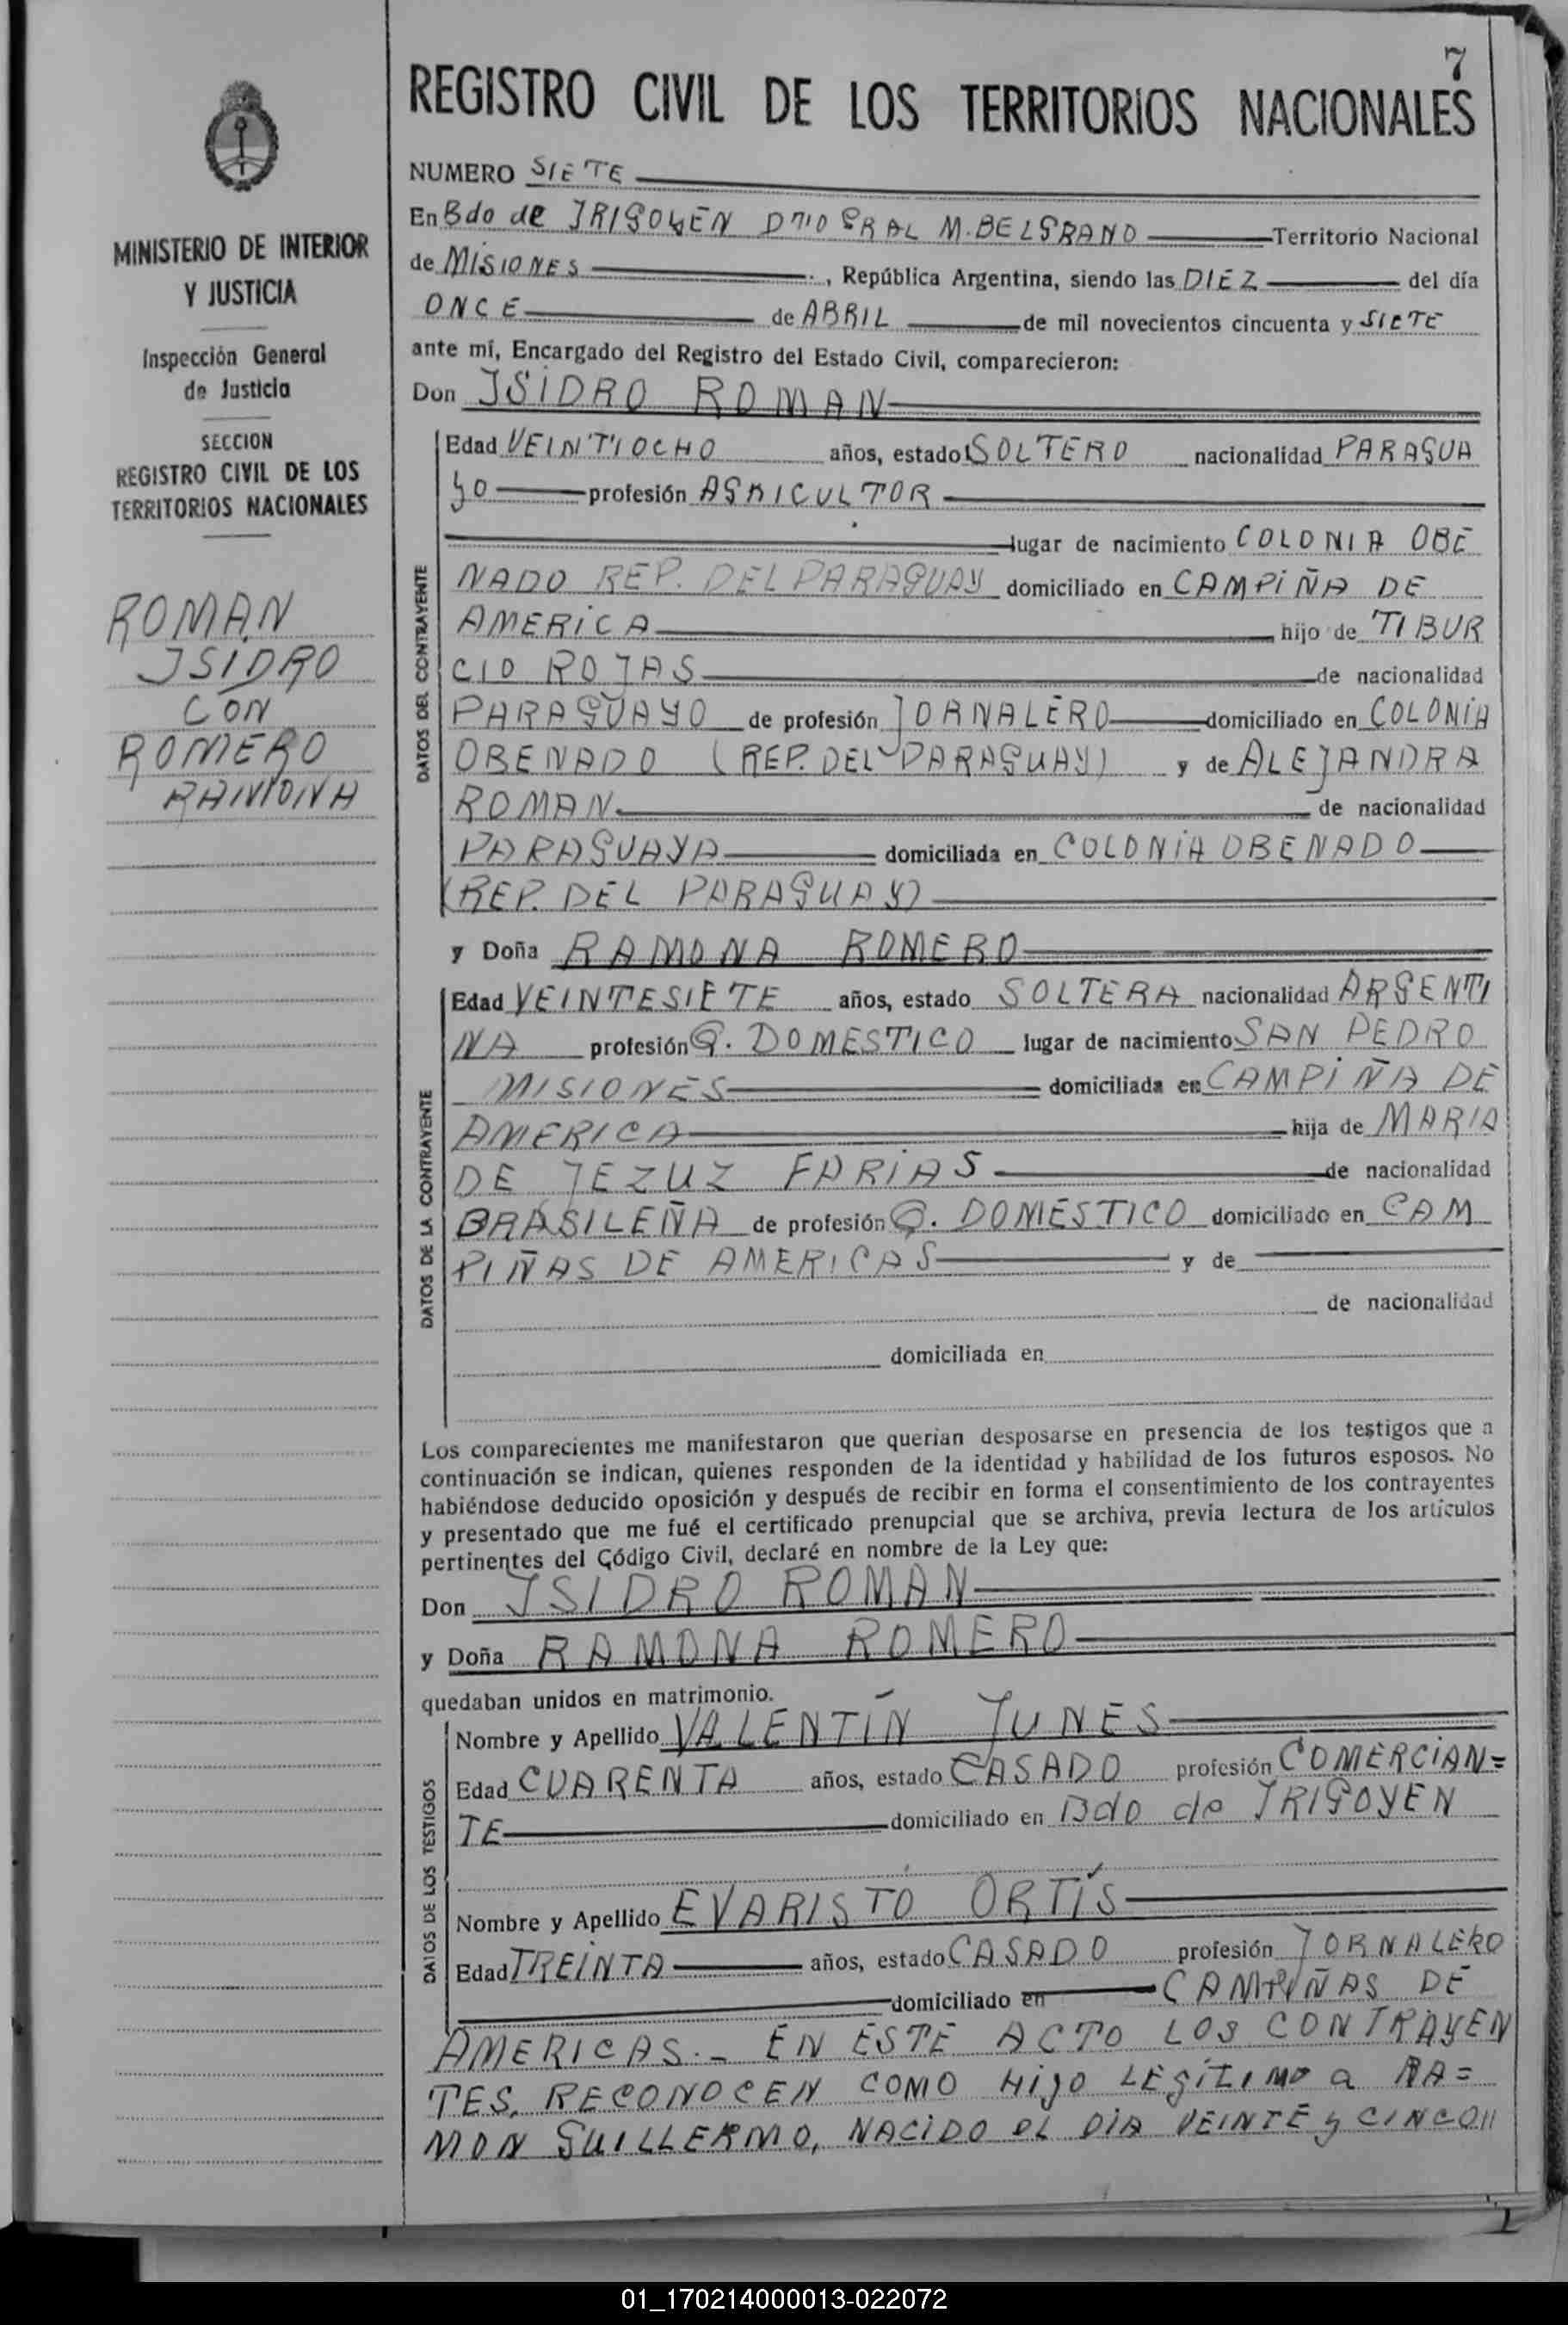 7
REGISTRO CIVIL DE LOS TERRITORIOS NACIONALES
MINISTERIO DE INTERIOR
Y JUSTICIA
Inspección General
de Justicia
SECCION
REGISTRO CIVIL DE LOS
TERRITORIOS NACIONALES
ROMAN
ISIDRO
CON
ROMERO
RAMONA
NUMERO SIETE
En Bdo de IRIGOYEN DTO GRAL M. BELGRANO Territorio Nacional
de MISIONES, República Argentina, siendo las DIEZ del día
ONCE de ABRIL de mil novecientos cincuenta y SIETE
ante mí, Encargado del Registro del Estado Civil, comparecieron:
Don ISIDRO ROMAN
DATOS DEL CONTRAYENTE
Edad VEINTIOCHO años, estado SOLTERO nacionalidad PARAGUA
YO profesión AGRICULTOR
lugar de nacimiento COLONIA OBE
NADO REP. DEL PARAGUAY domiciliado en CAMPIÑA DE
AMERICA hijo de TIBUR
CIO ROJAS de nacionalidad
PARAGUAYO de profesión JORNALERO domiciliado en COLONIA
OBENADO (REP. DEL PARAGUAY) y de ALEJANDRA
ROMAN de nacionalidad
PARAGUAYA domiciliada en COLONIA OBENADO
(REP. DEL PARAGUAY)
y Doña RAMONA ROMERO
DATOS DE LA CONTRAYENTE
Edad VEINTESIETE años, estado SOLTERA nacionalidad ARGENTI
NA profesión Q. DOMESTICO lugar de nacimiento SAN PEDRO
MISIONES domiciliada en CAMPIÑA DE
AMERICA hija de MARIA
DE JEZUZ FARIAS de nacionalidad
BRASILEÑA de profesión Q. DOMESTICO domiciliado en CAM
PIÑAS DE AMERICAS y de
de nacionalidad
domiciliada en
Los comparecientes me manifestaron que querían desposarse en presencia de los testigos que a
continuación se indican, quienes responden de la identidad y habilidad de los futuros esposos. No
habiéndose deducido oposición y después de recibir en forma el consentimiento de los contrayentes
y presentado que me fué el certificado prenupcial que se archiva, previa lectura de los artículos
pertinentes del Código Civil, declaré en nombre de la Ley que:
Don ISIDRO ROMAN
y Doña RAMONA ROMERO
quedaban unidos en matrimonio.
DATOS DE LOS TESTIGOS
Nombre y Apellido VALENTÍN JUNES
Edad CUARENTA años, estado CASADO profesión COMERCIAN=
TE domiciliado en Bdo de IRIGOYEN
Nombre y Apellido EVARISTO ORTÍS
Edad TREINTA años, estado CASADO profesión JORNALERO
domiciliado en CAMPIÑAS DE
AMERICAS.- EN ESTE ACTO LOS CONTRAYEN
TES, RECONOCEN COMO HIJO LEGÍTIMO a RA=
MON GUILLERMO, NACIDO EL DIA VEINTE y CINCO//
01_170214000013-022072